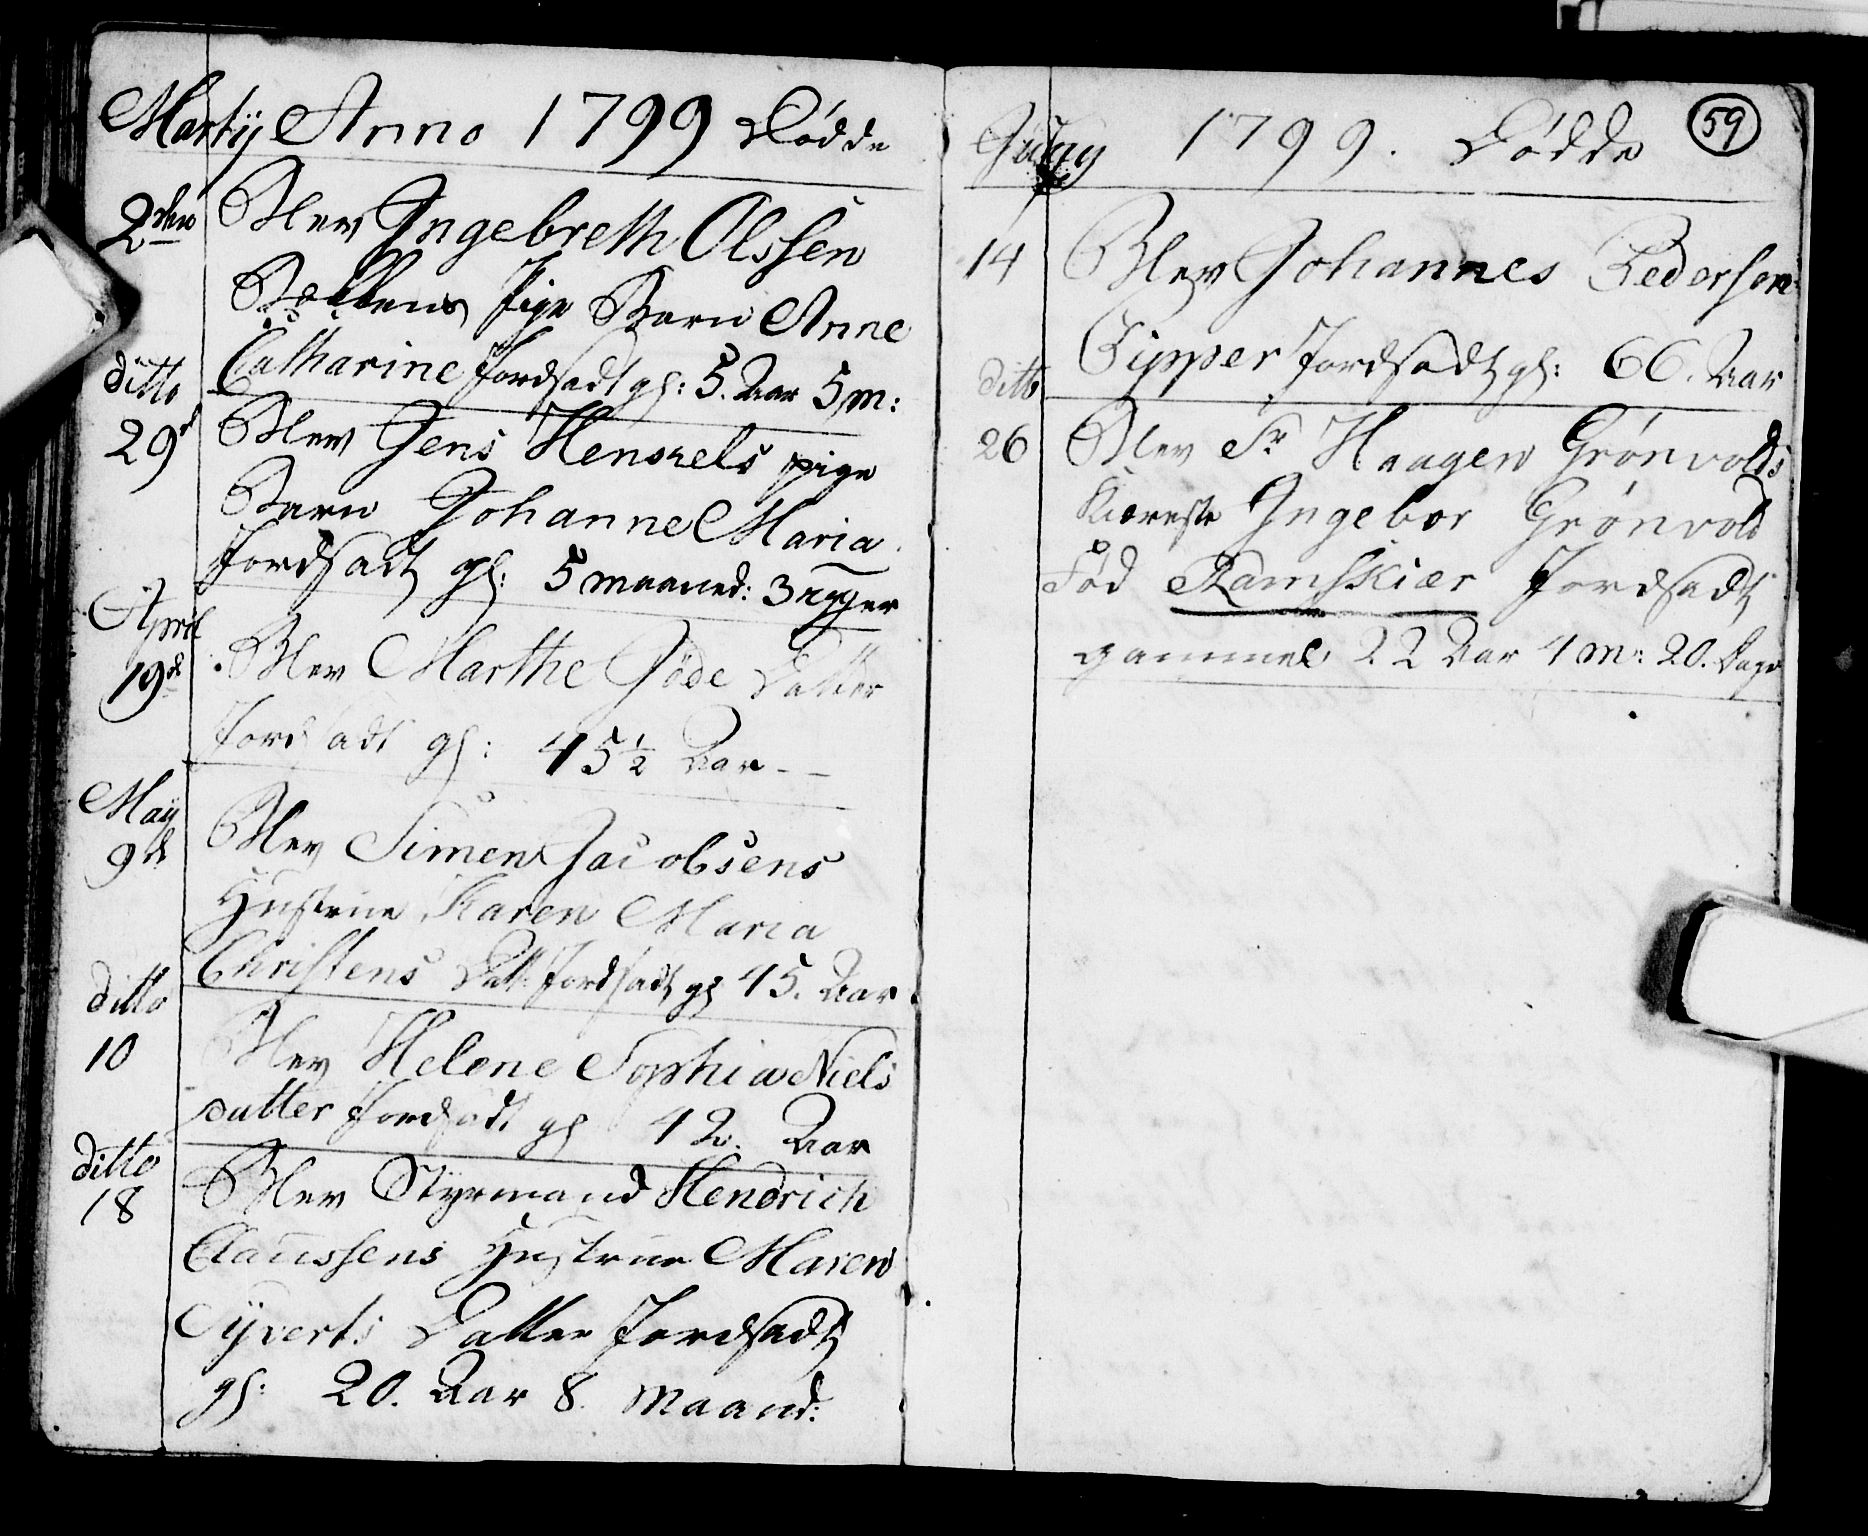 Martij Anno 1799 Dödde
2den Blev Ingebreth Olssen
Bakkens Pige Barn Anne
Catharine Jordsadt gl: 5. Aar 5 m:
ditto
29d Blev Jens Henszels pige
Barn Johanne Maria
Jordsadt gl: 5 maaned: 3 uger
April
19d Blev Marthe Göde Datter
Jordsadt gl: 45½ Aar
Maij
9d Blev Simen Jacobsens
Hustrue Karen Maria
Christens Datt: Jordsadt gl 45. Aar
ditto
10 Blev Helene Sophia Niels
datter Jordsadt gl 42. Aar
ditto
18 Blev Styrmand Hendrich
Claussens Hustrue Maren
Syverts Datter Jordsadt
gl: 20. Aar 8. Maand:
1799. Dödde 59
14 Blev Johannes Pedersen
Tipper Jordsadt gl: 66. Aar
ditto
26 Blev Sr Haagen Grönvolds
Kiæreste Ingebor Grönvold
Föd Ramskiær Jordsadt
gammel 22 Aar 4 m: 20. Dage